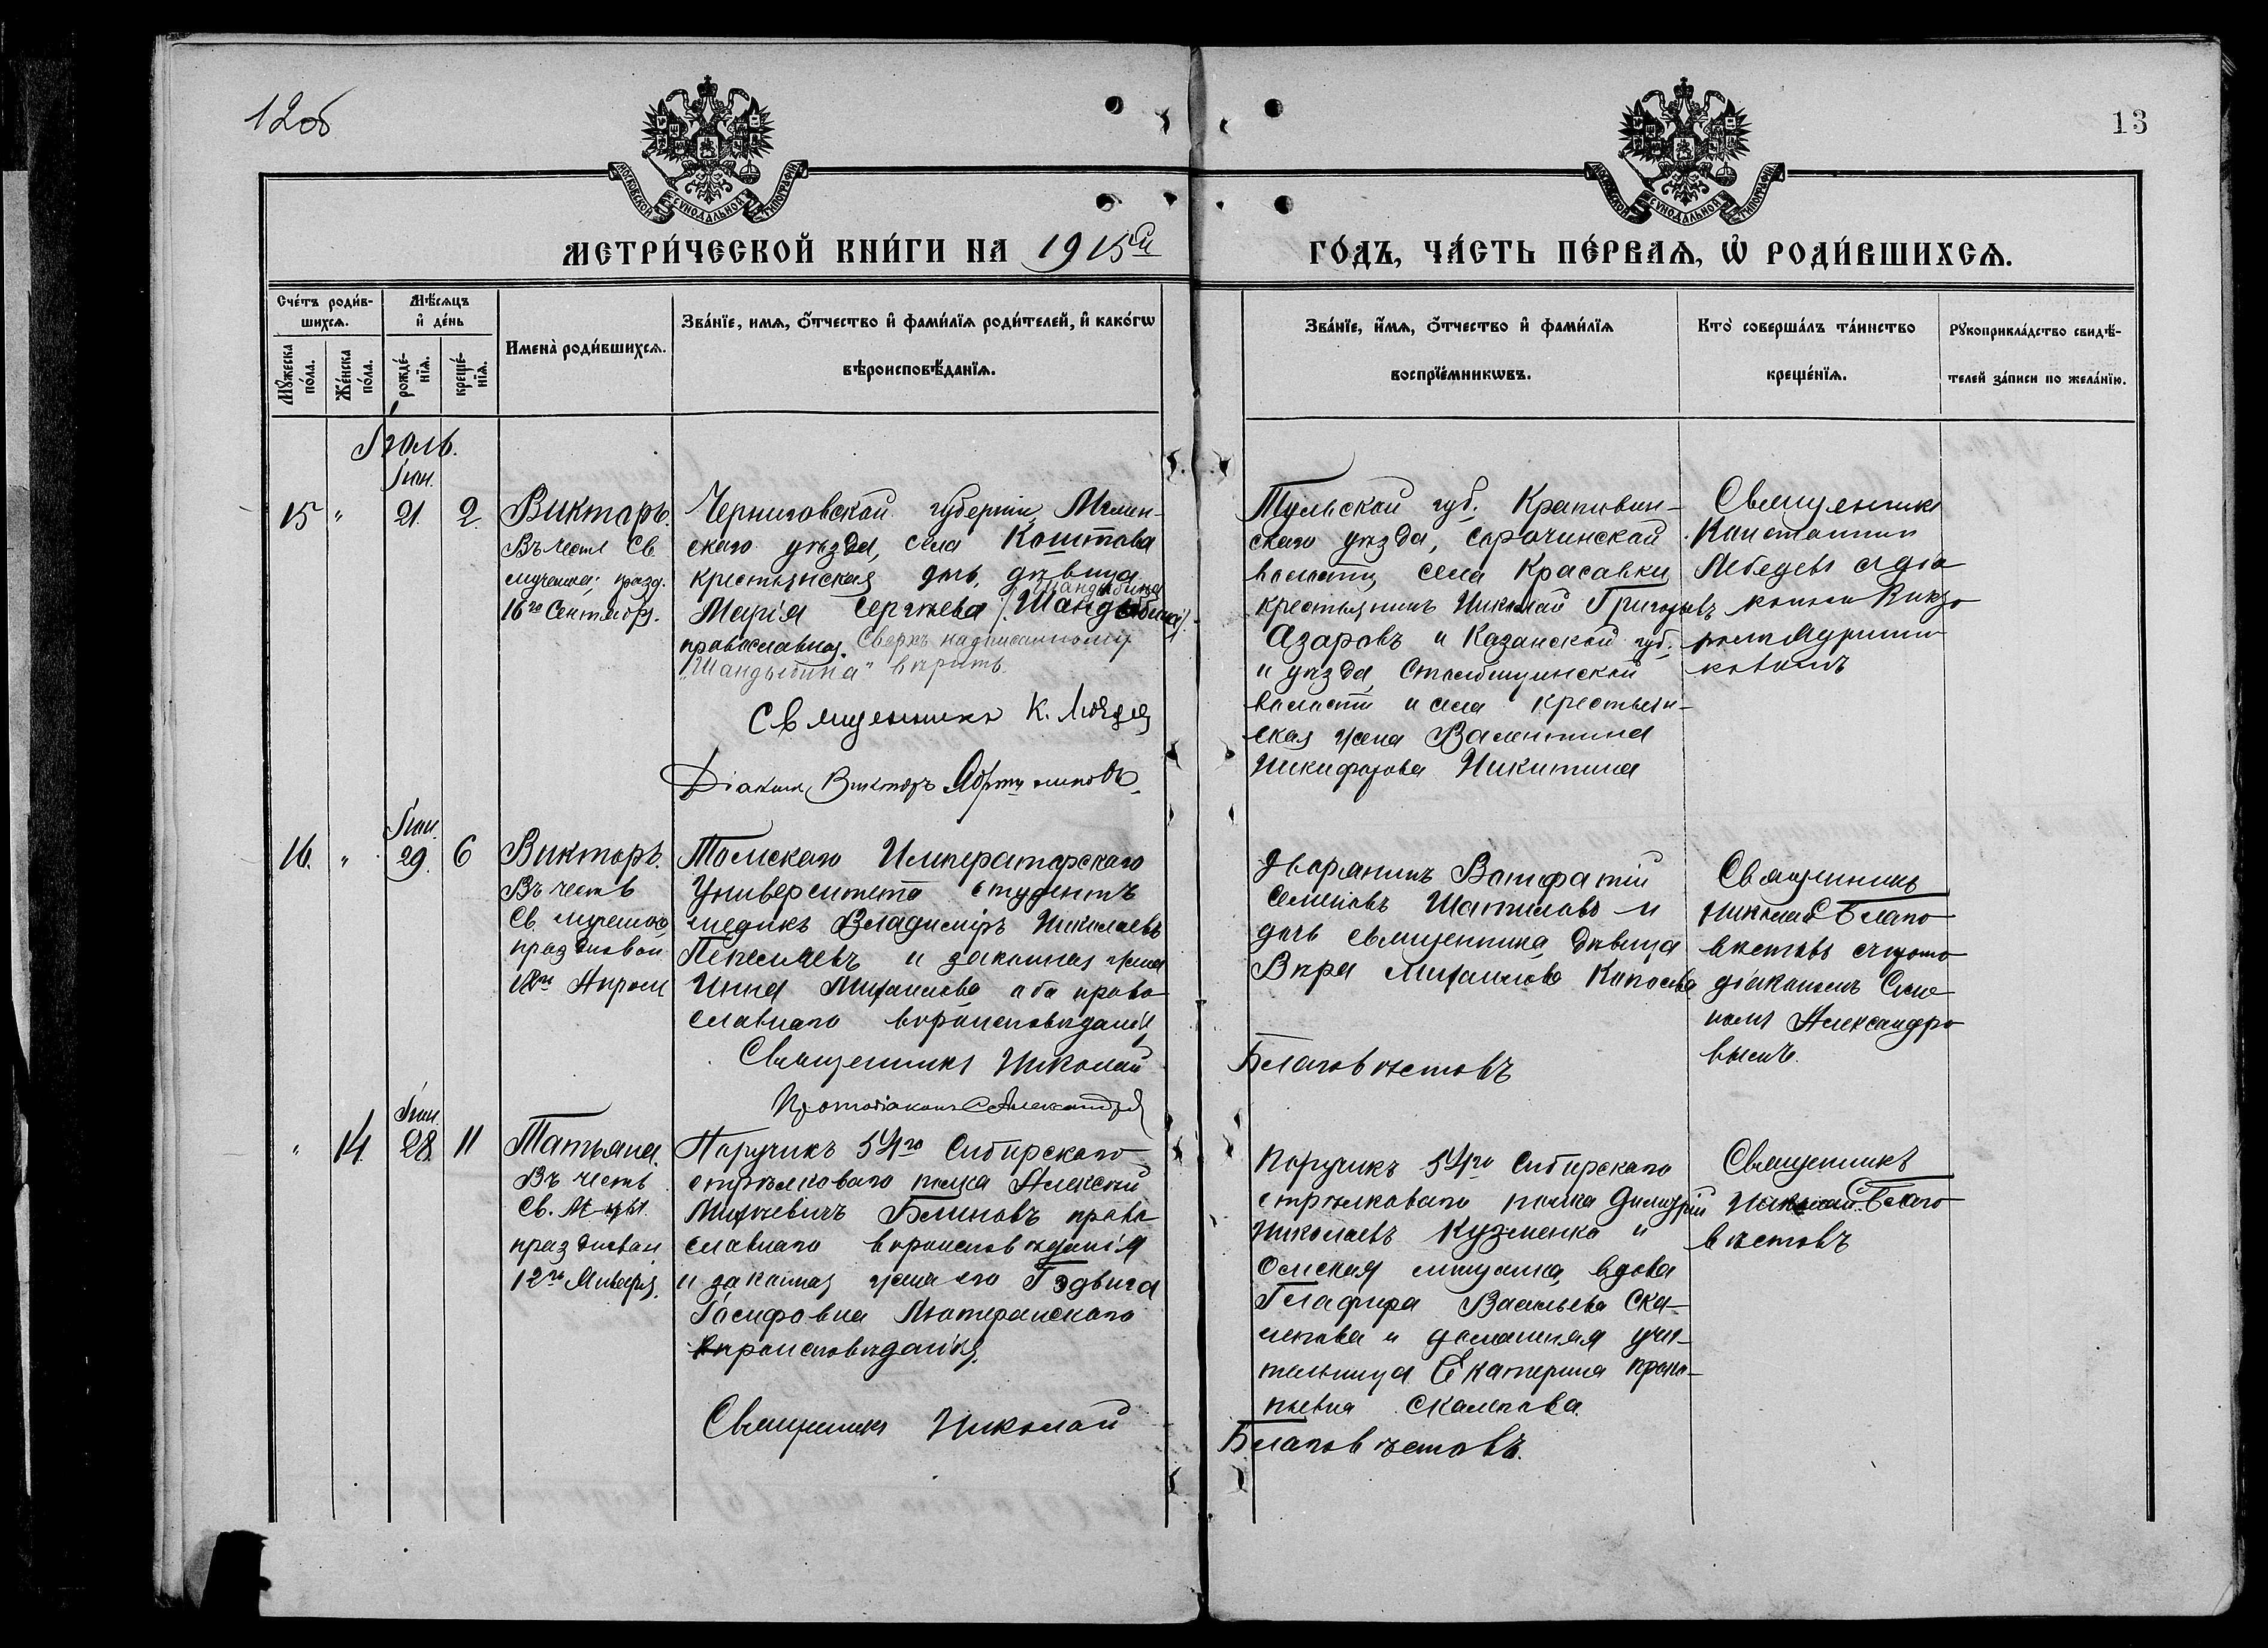 12об
13
МОСКОВСКОЙ СѴНОДАЛЬНОЙ ТИПОГРАФІИ
МОСКОВСКОЙ СѴНОДАЛЬНОЙ ТИПОГРАФІИ
МЕТРИ́ЧЕСКОЙ КНИ́ГИ НА 1915й
ГО́ДЪ, ЧА́СТЬ ПЕ́РВАѦ, Ѡ҆ РОДИ́ВШИХСѦ.
Сче́тъ роди́в-
шихсѧ.
Мѣ́сѧцъ
и҆ де́нь
Мꙋ́жеска
по́ла.
Же́нска
по́ла.
рожде́-
нїѧ.
креще́-
нїѧ.
Имена̀ роди́вшихсѧ.
Зва́нїе, имѧ, ѻ҆́тчество и҆ фами́лїѧ роди́телей, и҆ како́гѡ
вѣроисповѣ́данїѧ.
Зва́нїе, и҆́мѧ, ѻ҆́тчество и҆ фами́лїѧ
воспрїе́мникѡвъ.
Кто̀ соверша́лъ та́инство
креще́нїѧ.
Рꙋкоприкла́дство свидѣ́-
телей за́писи по жела́нїю.
Іюль.
Іюн.
15 " 21. 2. Викторъ.
Въ честь Св.
мученика; празд.
16го Сентября.
Черниговской губерніи, Мглин-
скаго уѣзда, села
крестьянская дочь, дѣвица
Шандыбина
Марія Сергѣева
православная. Сверхъ надписанному
„Шандыбина" вѣрить.
Священникъ К. Лебедев
Діаконъ Викторъ
Тульской губ. Крапивин-
скаго уѣзда, Сорочинской
волости села Красавки
крестьянинъ Николай Григорьевъ
Азаровъ и Казанской губ.
и уѣзда, Столбищинской
волости и села крестьян-
ская жена Валентина
Никифорова Никитина
Священникъ
Константин
Лебедевъ съ діа
кономъ Викто
ромъ
ковымъ
Іюн.
16. " 29. 6 Викторъ.
Въ честь
Св. мученика,
празднован.
18го Апрѣля
Томскаго Императорскаго
Университета студентъ
медикъ Владиміръ Николаевъ
Пепеляевъ и законная жена
Инна Михаилова оба право
славнаго вѣроисповѣданія
Священникъ Николай
Благовѣстовъ
Протодіаконъ С. Александров
Дворянинъ Вонифатій
Семеновъ Шатиловъ и
дочь священника, дѣвица
Вѣра Михаилова
Священникъ
Николай Благо
вѣстовъ съ прото
діакономъ Симе
ономъ Александро
вымъ.
Іюн.
" 14. 28. 11 Татьяна.
Въ честь
Св. М-цы
празднован.
12го Января.
Поручикъ 54го Сибирскаго
стрѣлковаго полка Алексѣй
Михѣевичъ Блиновъ право
славнаго вѣроисповѣданія
и законная жена его Гедвига
Іосифовна Лютеранскаго
вѣроисповѣданія.
Священникъ Николай
Благовѣстовъ.
Поручикъ 54го Сибирскаго
стрѣлковаго полка Димитрій
Николаевъ Кузменко и
Омская мѣщанка, вдова
Глафира Васильева Ска-
лепова и домашняя учи-
тельница Екатерина Проко-
пьевна Скалепова.
Священникъ
Николай Благо
вѣстовъ